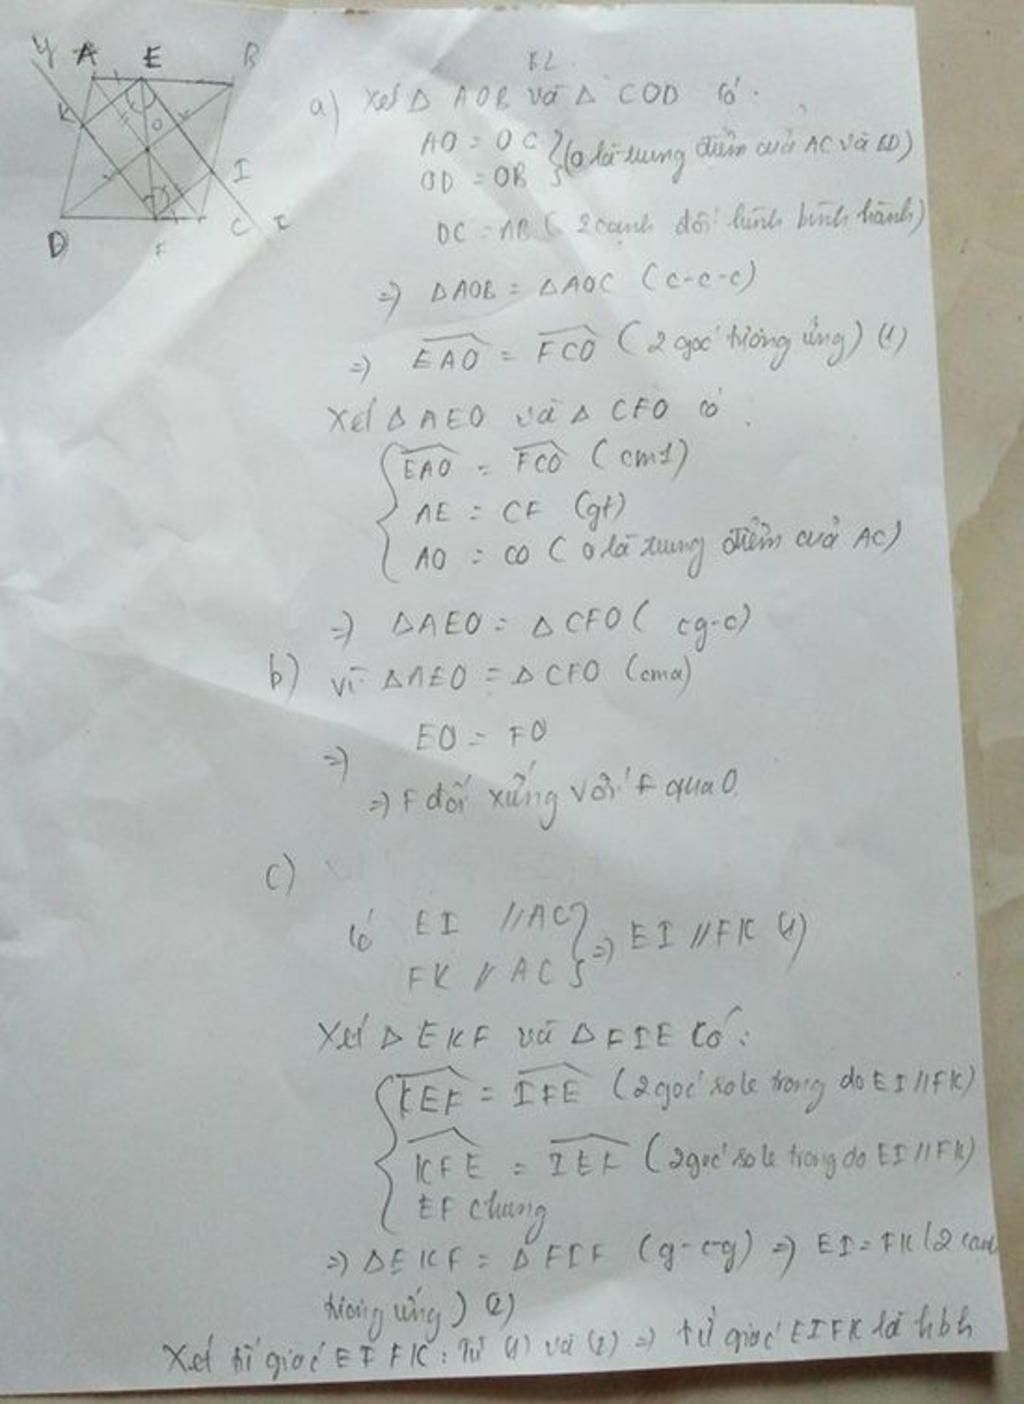 y A E B
K O
I
D F C x
a) Xét Δ AOB và Δ COD có.
AO = OC } (O là trung điểm của AC và BD)
OD = OB
DC = AB ( 2 cạnh đối hình bình hành)
=) ΔAOB = ΔAOC (c-c-c)
=) EAO = FCO ( 2 góc tương ứng) (1)
Xét Δ AEO và Δ CFO có
EAO = FCO (cm1)
AE = CF (gt)
AO = CO ( O là trung điểm của AC)
=) ΔAEO = ΔCFO( cg-c)
b) Vì ΔAEO = ΔCFO (cma)
=) EO = FO
=) F đối xứng với F qua O.
c)
Có EI //AC } =) EI // FK (1)
FK // AC
Xét Δ EKF và Δ FIE có:
KEF = IFE (2 góc sole trong do EI//FK)
KFE = IEF (2 góc sole trong do EI//FK)
EF chung
=) ΔEKF = ΔFIF (g-c-g) =) EI = FK (2 cạnh
tương ứng) (2)
Xét tứ giác EIFK: Từ (1) và (2) =) tứ giác EIFK là hbh